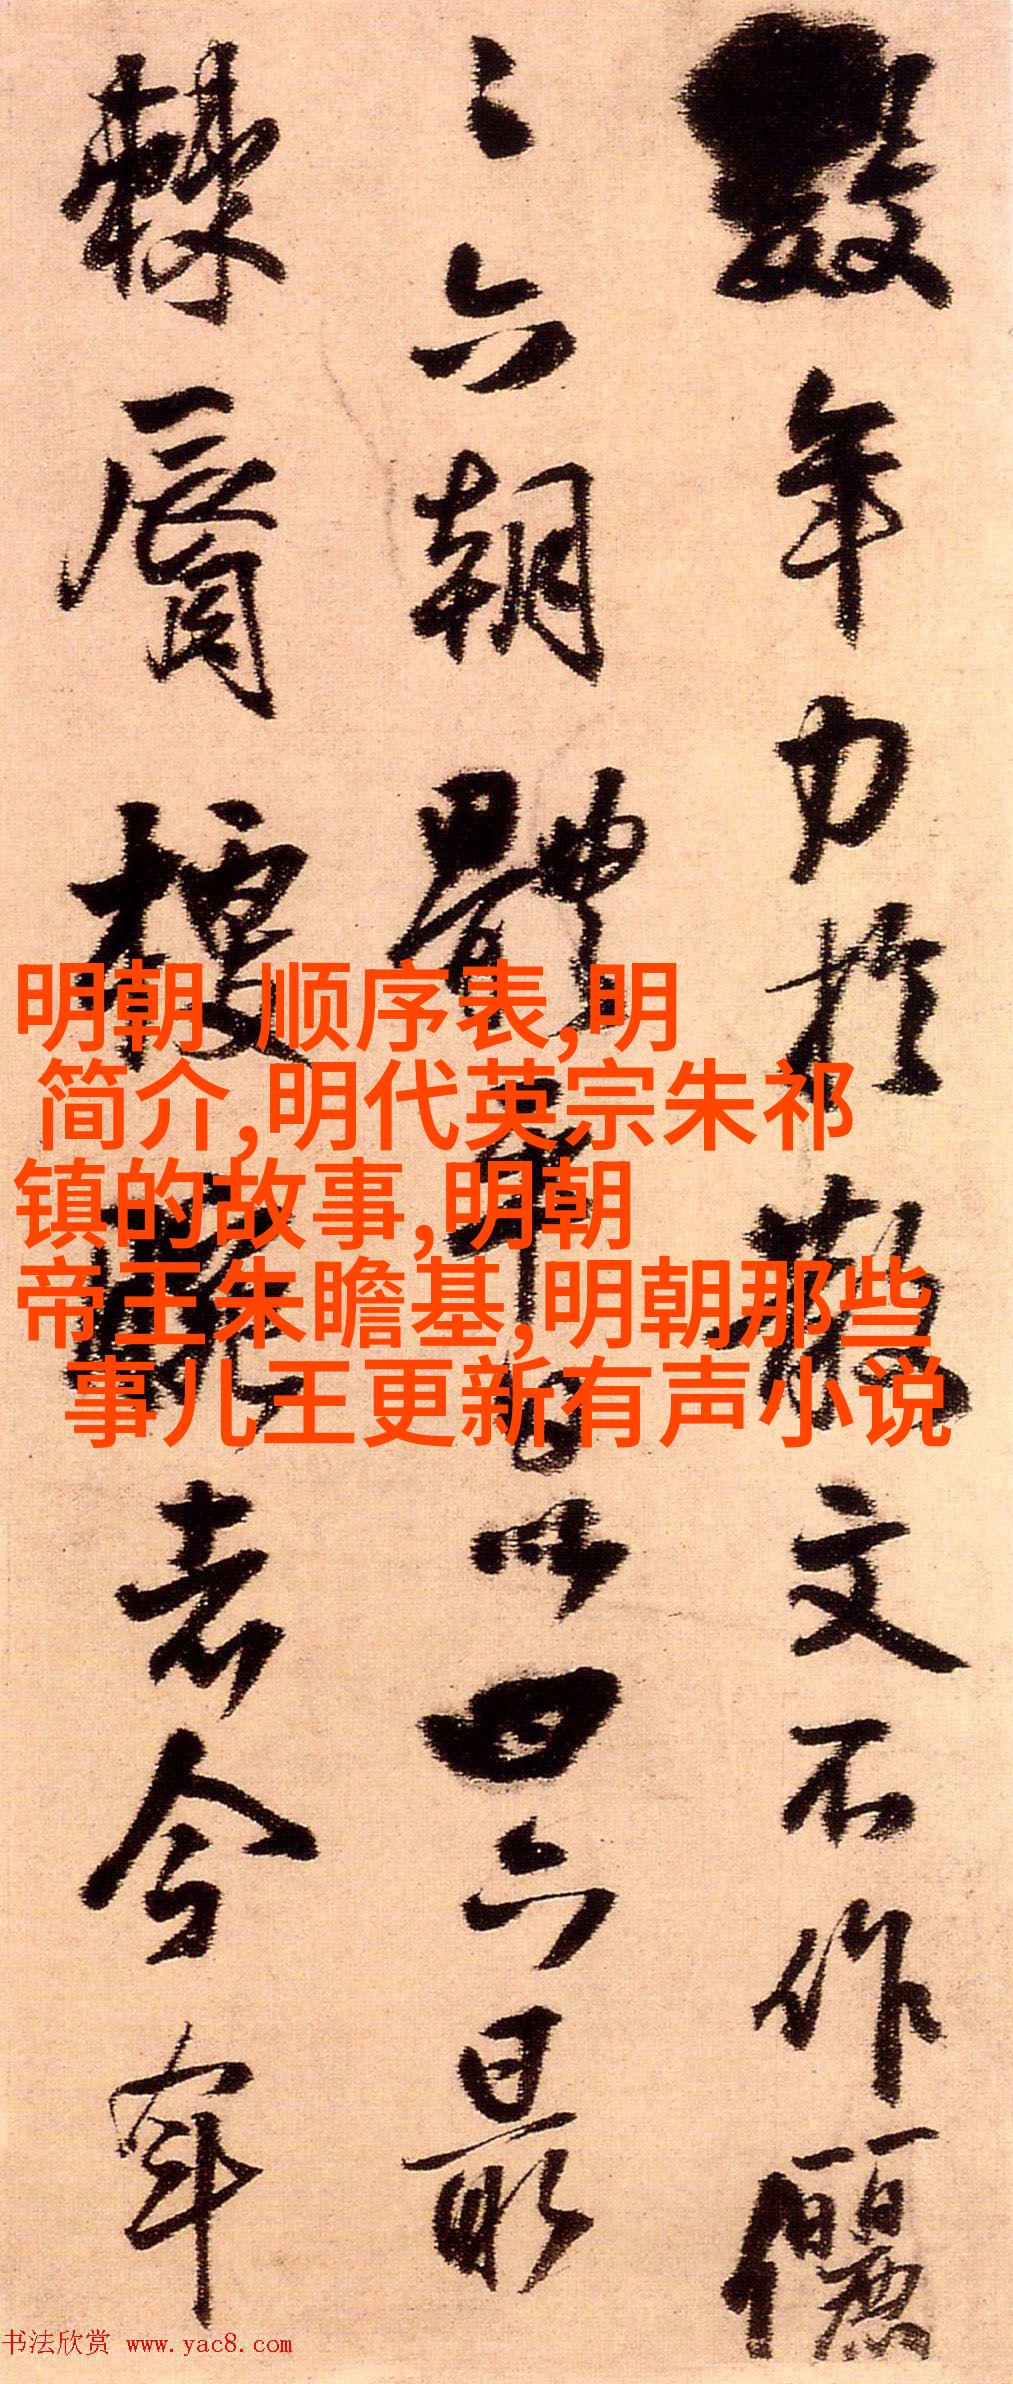 數年力於文不作儷
〻六朝體日以四六最
棘脣梗者今年
明朝 顺序表,明
简介,明代英宗朱祁
镇的故事,明朝
帝王朱瞻基,明朝那些
事儿王更新有声小说
书法欣赏 www.yac8.com